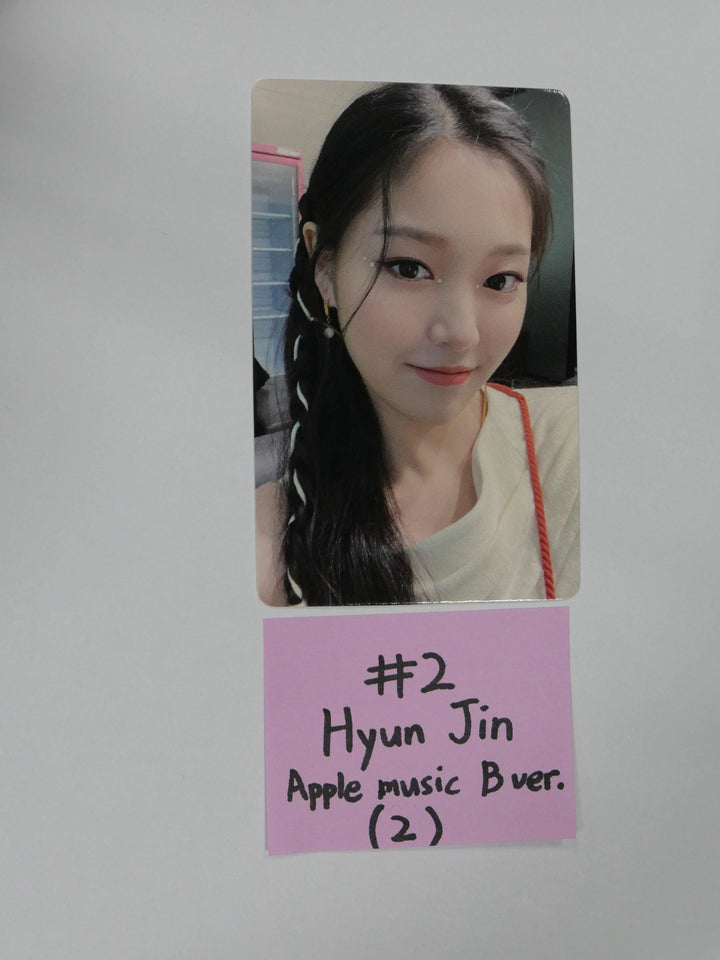 #2
Hyun Jin
Apple music B ver.
(2)